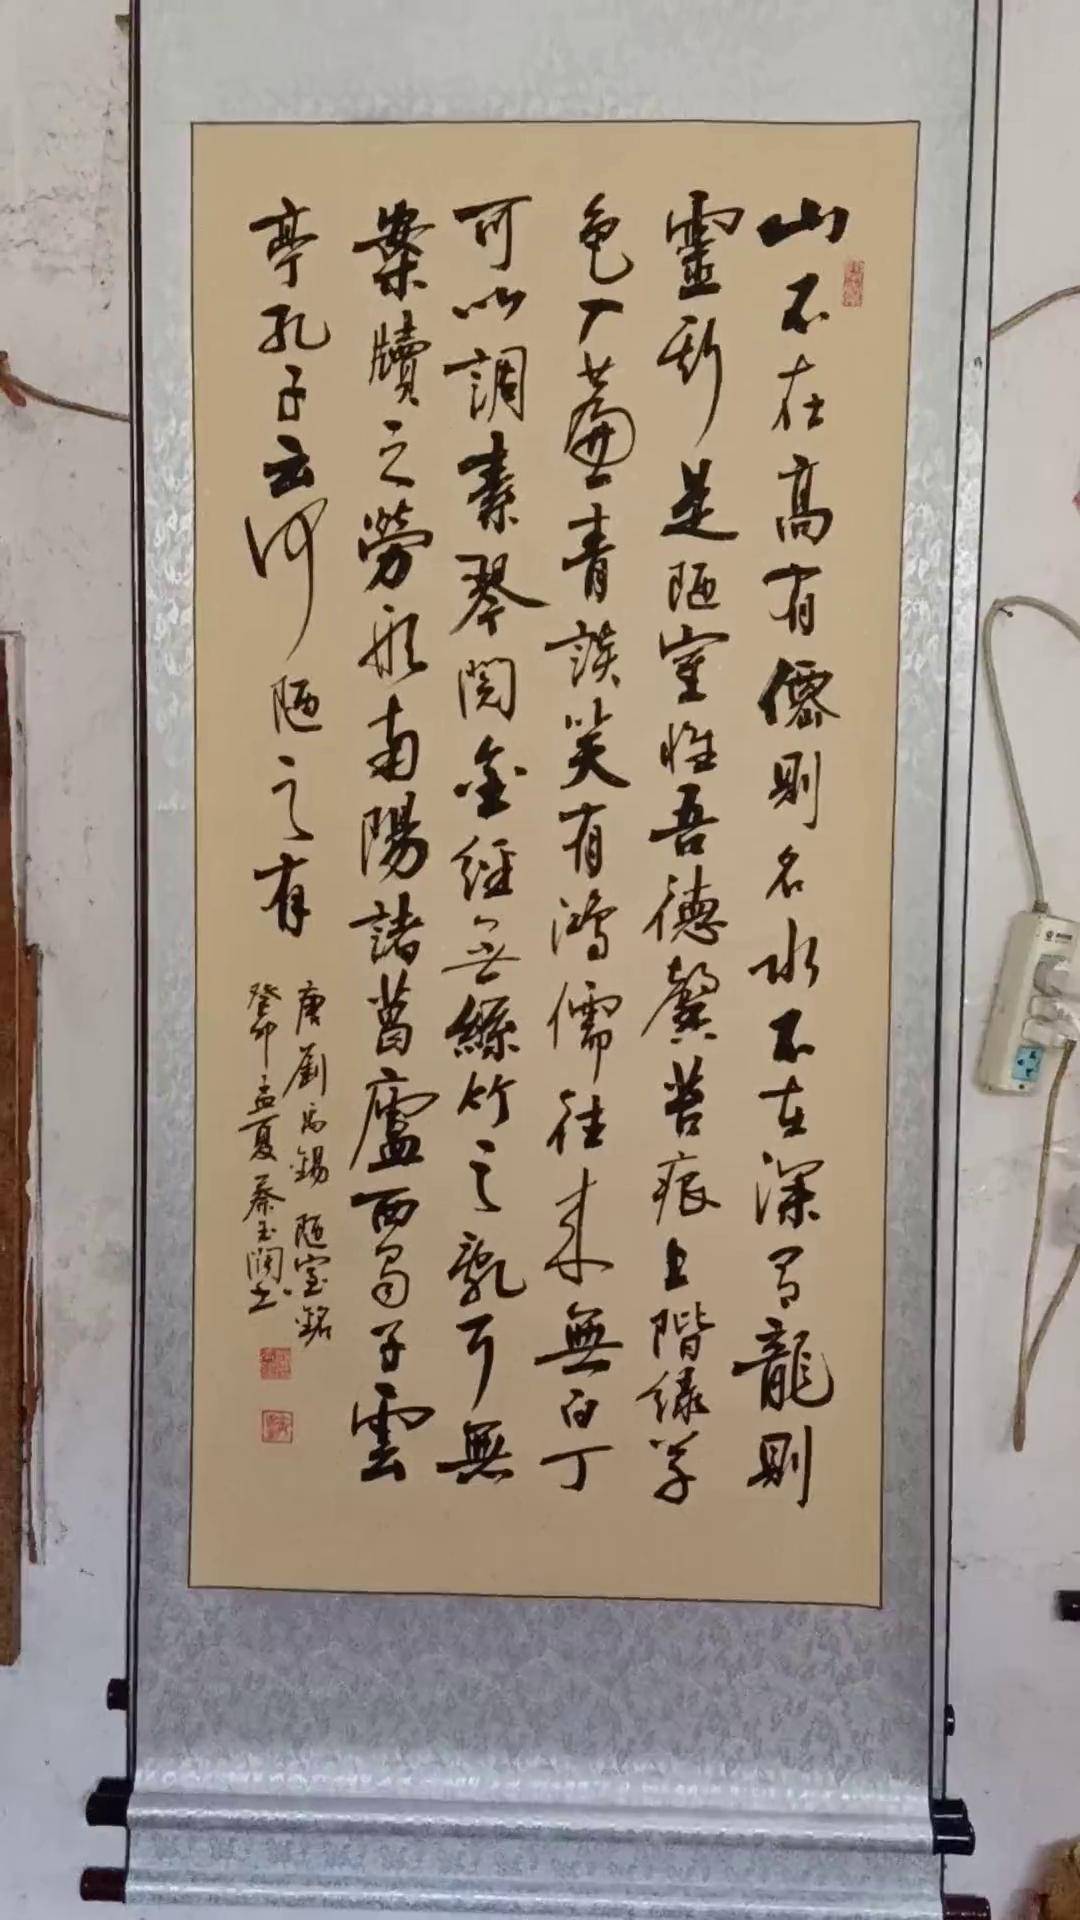 山不在高有僊則名水不在深有龍則
靈斯是陋室惟吾德馨苔痕上階緑草
色入簾青談笑有鴻儒往来無白丁
可以調素琴閱金經無絲竹之亂耳無
案牘之勞形南陽諸葛廬西蜀子雲
亭孔子云何陋之有
唐劉禹錫陋室銘
癸卯孟夏秦玉闊书